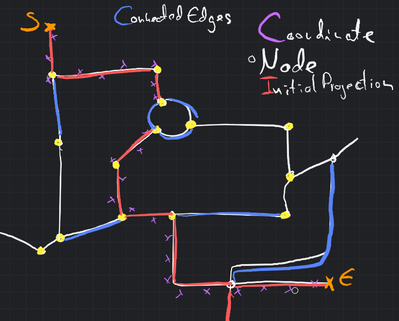 S
Connected Edges
Coordinate
Node
Initial Projection
E